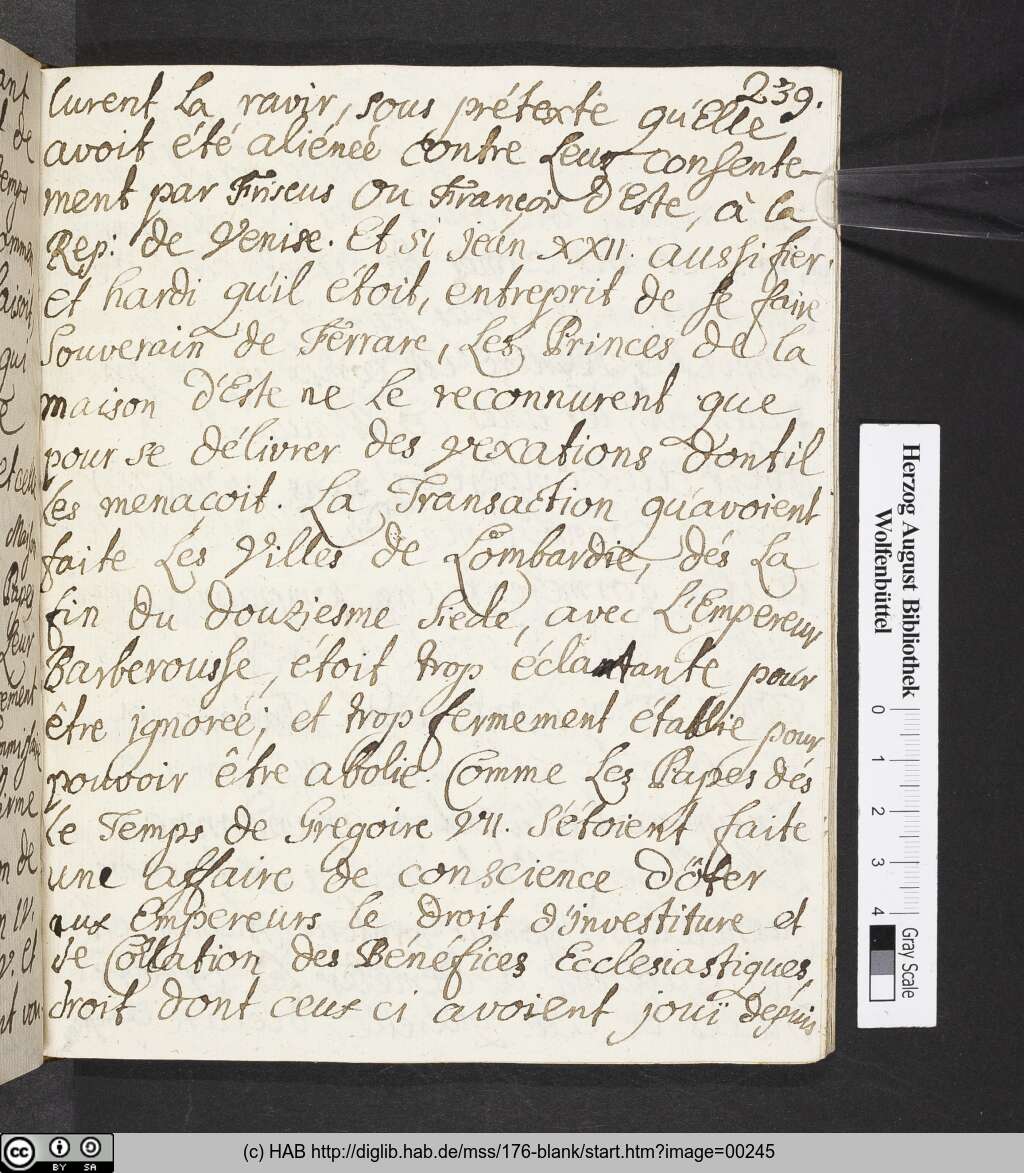 239.
lurent la ravir, sous prétexte qu'Elle
avoit été aliénée contre leur consente-
ment par Friscus ou François d'Este, à la
Rep: de Venise. Et si jean XXII. aussi fier
et hardi qu'il étoit, entreprit de se faire
Souverain de Ferrare, Les Princes de la
maison d'Este ne le reconnurent que
pour se délivrer des vexations dont il
les menacoit. La Transaction qu'avoient
faite Les Villes de Lombardie, dés la
fin du douziesme siecle, avec L'Empereur
Barberousse, étoit trop éclatante pour
être ignoreé; et trop fermement établie pour
pouvoir être abolie. Comme les Papes dés
le Temps de Gregoire VII. s'étoient faite
une affaire de conscience d'ôter
aux Empereurs le droit d'investiture et
de Collation des Bénéfices Ecclesiastiques,
droit dont ceux ci avoient jouï depuis
Herzog August Bibliothek
Wolfenbüttel
0 1 2 3 4
Gray Scale
(c) HAB http://diglib.hab.de/mss/176-blank/start.htm?image=00245
cc BY SA